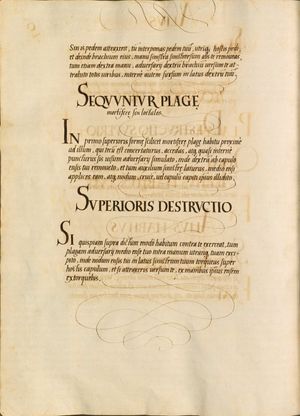 Sin is pedem attraxerit, tu interponas pedem tuũ utrisq̃ hostis pedib,
et deinde brachium eius, manu sinistra sinistrorsum abs te removeas,
tum etiam dextra manu, adversarij dextro brachio versum te at
tracto totis viribus, internè autem sursum in latus dextrũ tuũ.
SEQVVNTVR PLAGE,
mortiferę seu loctales.
IN primo superioris formę scilicet mortiferę plagę habitu proximè
ad illum, qui tecũ est concertaturus, accedas, atq̃
puncturus sis versum adversarij simulato, inde dextra ab capulo
ensis tuo removeto, et tum auxilium sinistrę laturus, medio ensi
applices eam, atq̃ nodum, cruce, vel capulo caput eius allidito.
SVPERIORIS DESTRVCTIO
SI quispiam supra dictum modũ habitum contra te exerceat, tum
plagam adversarij medio ense tuo intra manum utrunq̃ tuam exci-
pito, inde nodum ensis tui in latus sinistrum tuum torqueas super
hostis capulum, et si attraxeris versum te, ex manibus ipsius ensem
extorquebis.